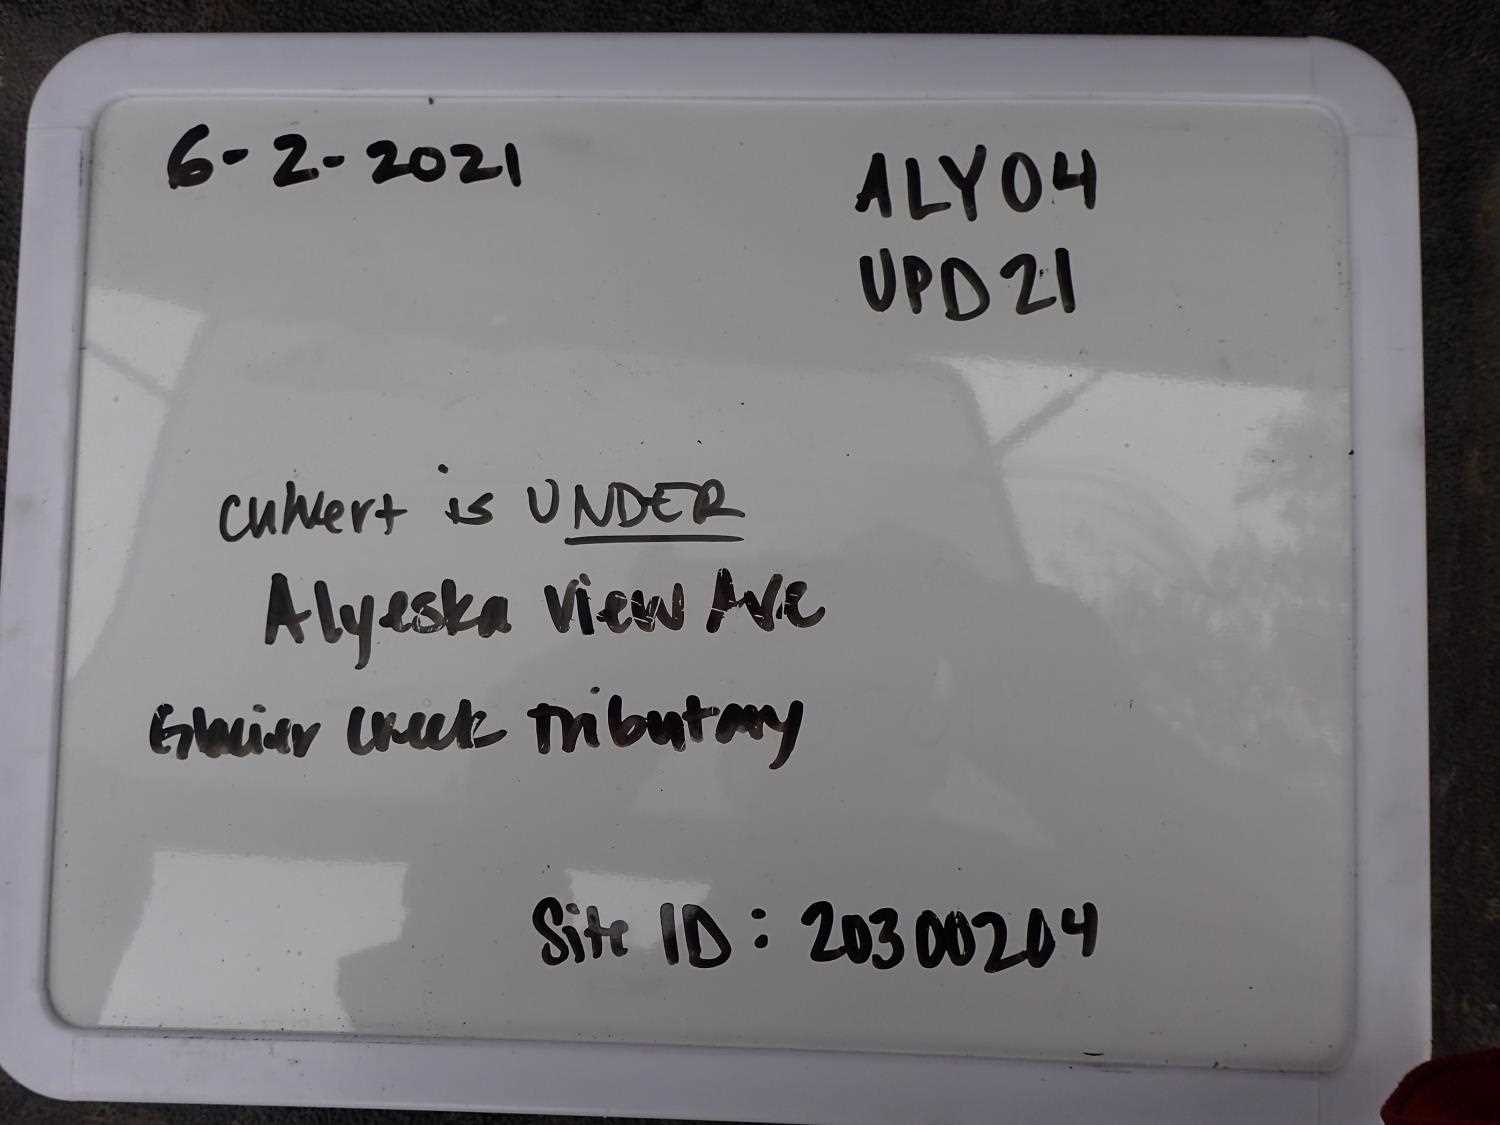 6-2-2021
ALY04
UPD21
culvert is UNDER
Alyeska View Ave
Glacier Creek Tributary
Site ID: 20300204